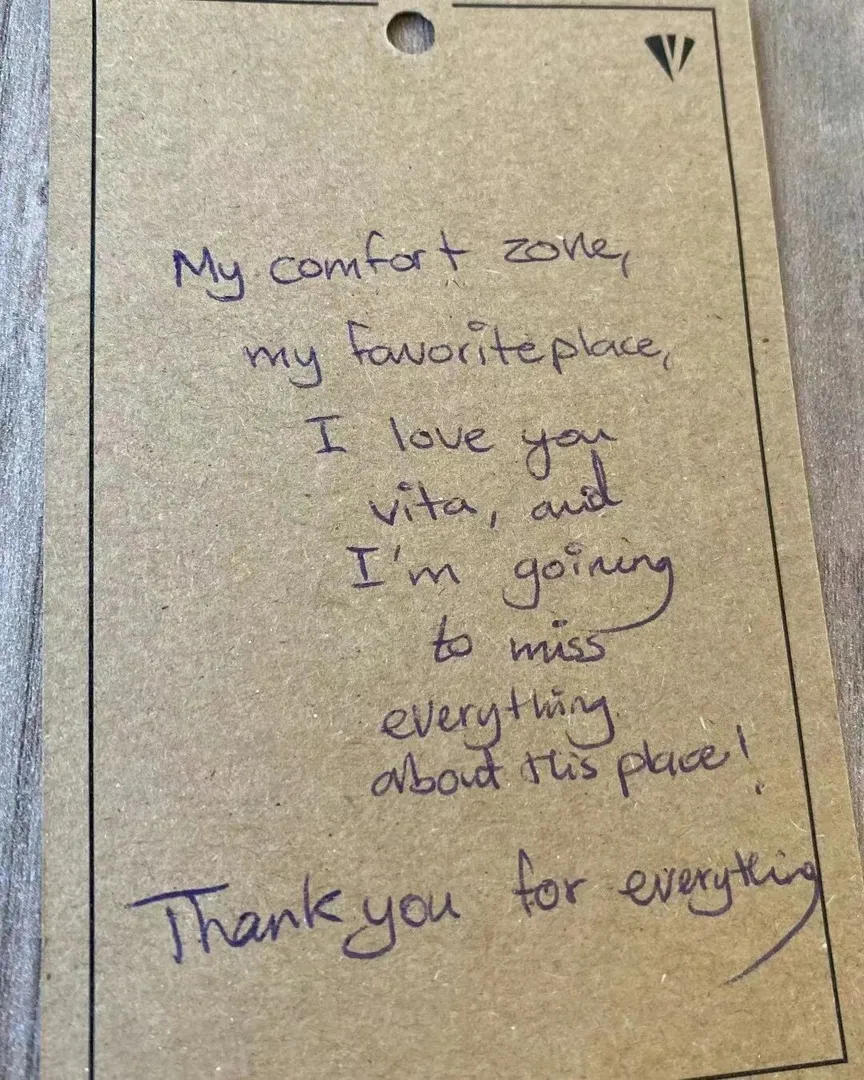 My comfort zone,
my favorite place,
I love you
vita, and
I'm goining
to miss
everything
about this place!
Thank you for everything